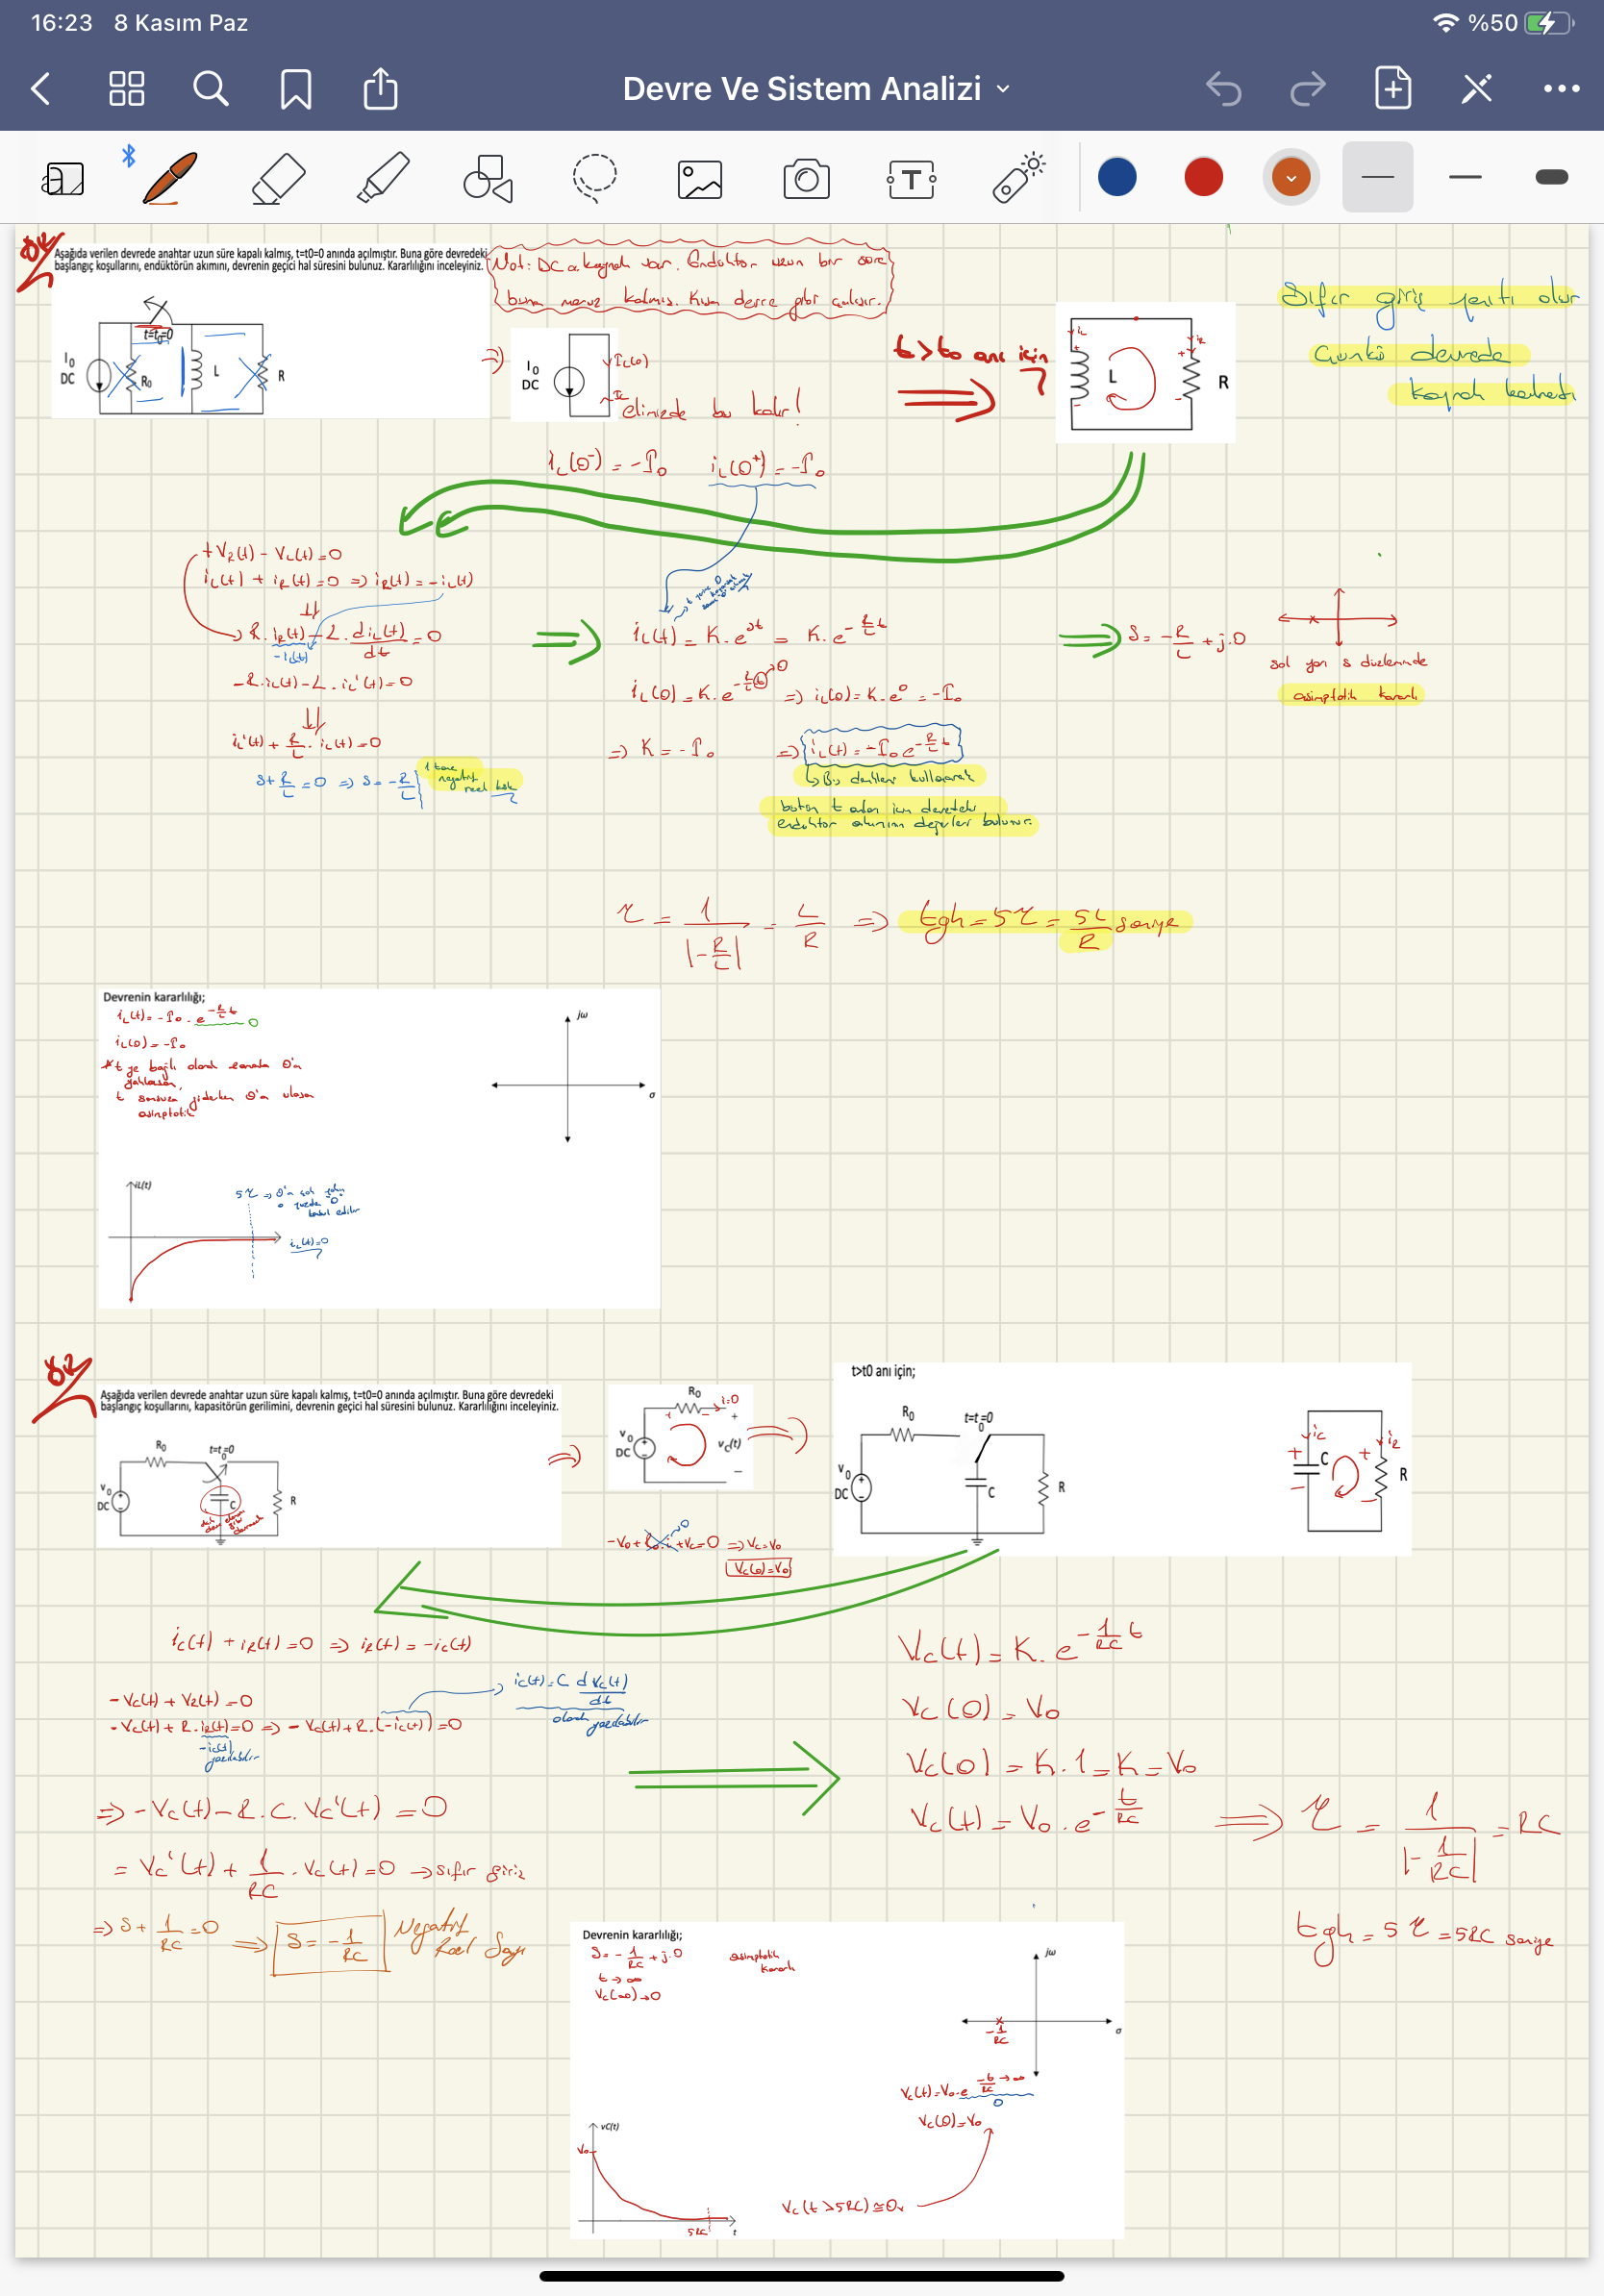 16:23 8 Kasım Paz
%50
Devre Ve Sistem Analizi
Aşağıda verilen devrede anahtar uzun süre kapalı kalmış, t=t0=0 anında açılmıştır. Buna göre devredeki
başlangıç koşullarını, endüktörün akımını, devrenin geçici hal süresini bulunuz. Kararlılığını inceleyiniz.
Not: DC a. kaynak var. Endüktör uzun bir süre
buna maruz kalmış. Kısa devre gibi çalışır.
t=t0=0
I0
DC
R0
L
R
I0
DC
IL(0)
elimizde bu kalır!
t>t0 anı için
L
R
Sıfır giriş yanıtı olur
Çünkü devrede
kaynak kalmadı
iL(0⁻) = -I0
iL(0⁺) = -I0
+VR(t) - VL(t) = 0
iL(t) + iR(t) = 0 => iR(t) = -iL(t)
R.iR(t) - L.diL(t)/dt = 0
-iL(t)
-R.iL(t) - L.iL'(t) = 0
iL'(t) + R/L.iL(t) = 0
s+R/L = 0 => s = -R/L
1 tane
negatif
reel kök
iL(t) = K.e^st = K.e^-R/L t
iL(0) = K.e^-R/L 0 => iL(0) = K.e^0 = -I0
=> K = -I0 => iL(t) = -I0 e^-R/L t
Bu denklem kullanarak
bütün t anları için devredeki
endüktör akımının değerleri bulunur.
s = -R/L + j.0
sol yarı s düzleminde
asimptotik kararlı
τ = 1/|-R/L| = L/R => tgh = 5τ = 5L/R saniye
Devrenin kararlılığı;
iL(t) = -I0.e^-R/L t 0
iL(0) = -I0
*t ye bağlı olarak zamanla 0'a
yaklaşan,
t sonsuza giderken 0'a ulaşan
asimptotik
jω
σ
iL(t)
5τ => 0'a çok yakın
o yüzden "0"
kabul edilir
iL(t)=0
Aşağıda verilen devrede anahtar uzun süre kapalı kalmış, t=t0=0 anında açılmıştır. Buna göre devredeki
başlangıç koşullarını, kapasitörün gerilimini, devrenin geçici hal süresini bulunuz. Kararlılığını inceleyiniz.
R0
t=t0=0
v0
DC
C
R
R0
i=0
v0
DC
vC(t)
-V0 + R0.i + VC = 0 => VC = V0
VC(0) = V0
t>t0 anı için;
R0
t=t0=0
v0
DC
C
R
iC
iR
C
R
iC(t) + iR(t) = 0 => iR(t) = -iC(t)
-VC(t) + VR(t) = 0
-VC(t) + R.iR(t) = 0 => -VC(t) + R.(-iC(t)) = 0
-iC(t)
yazılabilir
iC(t) = C dVC(t)/dt
olarak yazılabilir
=> -VC(t) - R.C.VC'(t) = 0
= VC'(t) + 1/RC.VC(t) = 0 → sıfır giriş
=> s + 1/RC = 0 => s = -1/RC Negatif
Reel Sayı
VC(t) = K.e^-1/RC t
VC(0) = V0
VC(0) = K.1 = K = V0
VC(t) = V0.e^-t/RC => τ = 1/|-1/RC| = RC
tgh = 5τ = 5RC saniye
Devrenin kararlılığı;
s = -1/RC + j.0 asimptotik
kararlı
t → ∞
VC(∞) → 0
jω
σ
-1/RC
VC(t) = V0.e^-t/RC → ∞
0
VC(0) = V0
vC(t)
V0
5RC
t
VC(t > 5RC) ≅ 0v